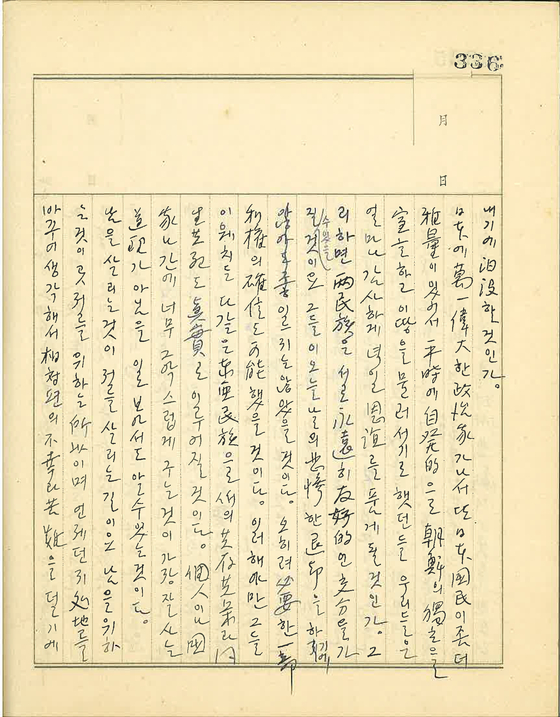 336
月
日
내기에 汨沒한 것인가.
日本에 萬一 偉大한 政治家가 나서 또 日本國民이 좀 더
雅量이 있어서 平時에 自発的으로 朝鮮의 獨立을
宣言하고 이 땅을 물러서기로 했던들 우리들은
얼마나 감사하게 녁일 恩誼를 품게 될 것인가. 그
리하면 両民族은 서로 永遠히 友好的인 交分을 가
질 수 있을 것이오 그들이 오늘날의 悲惨한 退却을 하기에
않아도 좋 일은 되는 않았을 것이다. 오히려 必要한 一部
利権의 確保도 可能했을 것이다. 이러해야만 그들
이 외치는 다같은 東亜民族으로서의 共存共榮과
生共死도 眞實로 이루어질 것이다. 個人이나 國
家나 간에 너무 극악스럽게 구는 것이 가장 잘 사는
道理가 아님을 일로 보아서도 알 수 있는 것이다.
남을 살리는 것이 저를 살리는 길이오 남을 위하
는 것이 곳 저를 위하는 所以이며 언제던지 処地를
바꾸어 생각해서 相對편의 不幸과 苦難을 덜기에